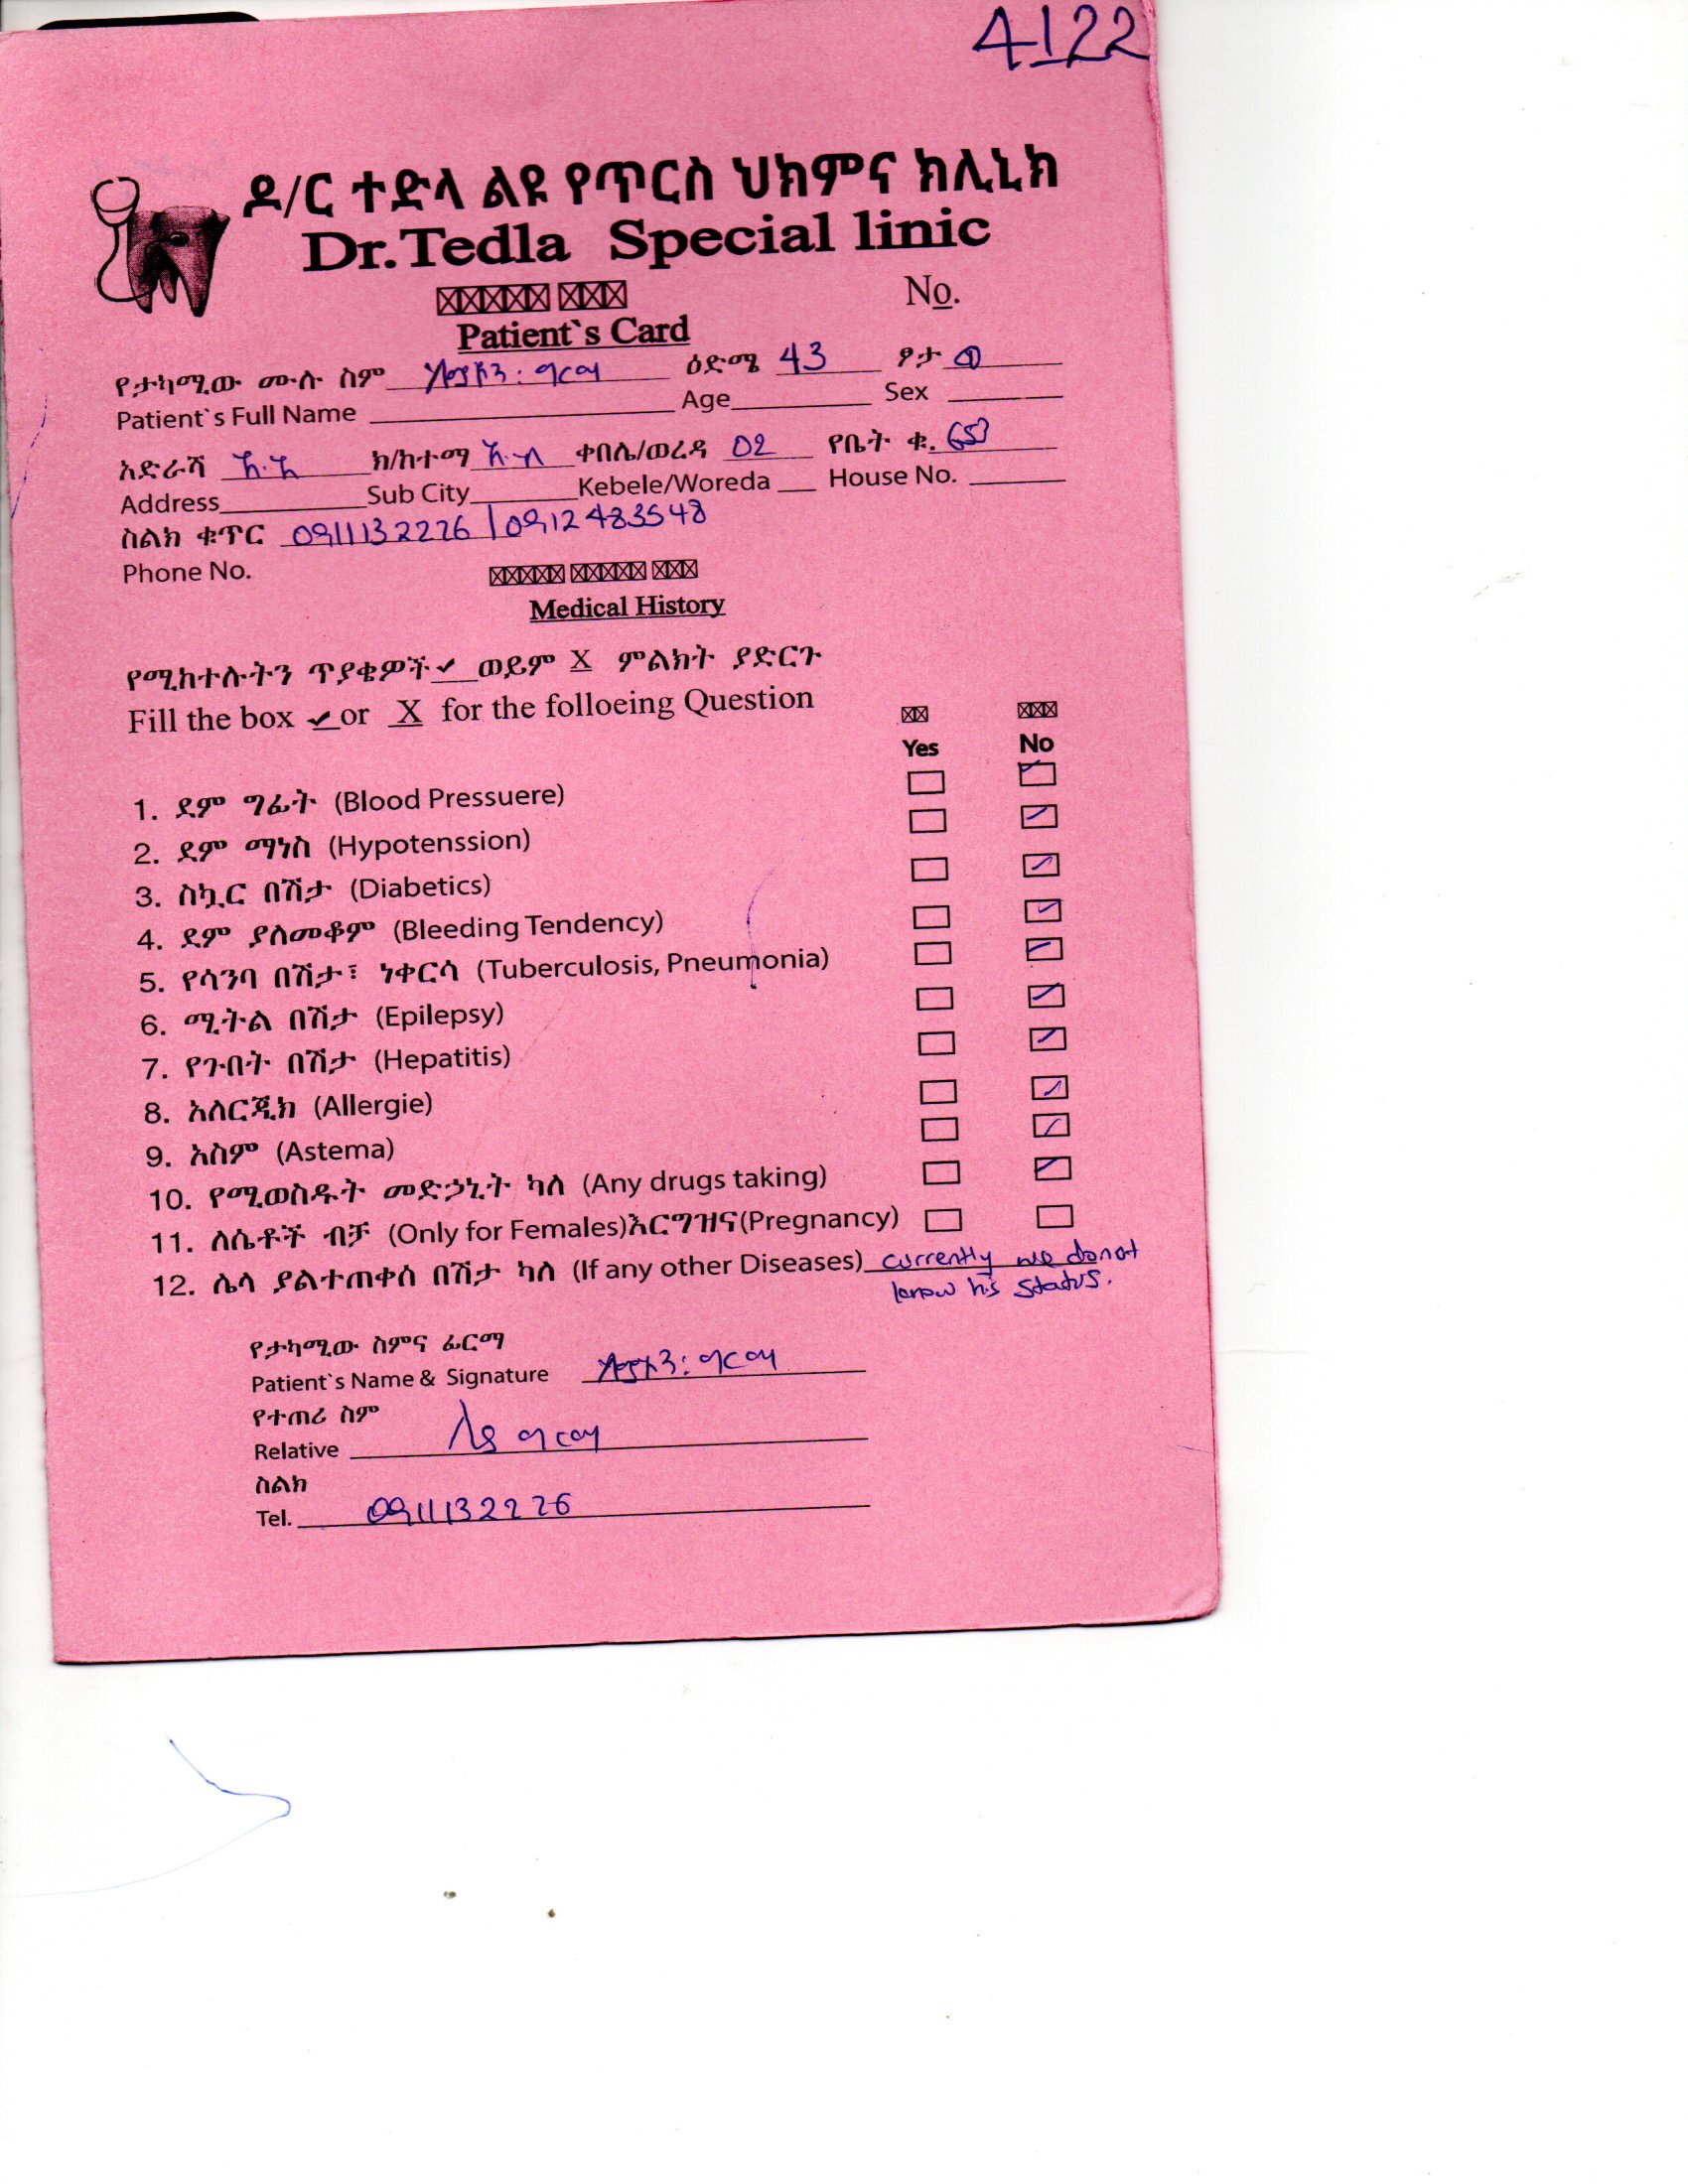 4122
ዶ/ር ተድላ ልዩ የጥርስ ህክምና ክሊኒክ
Dr.Tedla Special linic
No.
Patient`s Card
የታካሚው ሙሉ ስም ዕድሜ 43 ፆታ
Patient`s Full Name Age Sex
አድራሻ አ.አ ክ/ከተማ ቀበሌ/ወረዳ 02 የቤት ቁ. 653
Address Sub City Kebele/Woreda House No.
ስልክ ቁጥር 0911132226 / 0912483548
Phone No.
Medical History
የሚከተሉትን ጥያቄዎች ✓ ወይም X ምልክት ያድርጉ
Fill the box ✓ or X for the folloeing Question
Yes No
1. ደም ግፊት (Blood Pressuere) ✓
2. ደም ማነስ (Hypotenssion) ✓
3. ስኳር በሽታ (Diabetics) ✓
4. ደም ያለመቆም (Bleeding Tendency) ✓
5. የሳንባ በሽታ፣ ነቀርሳ (Tuberculosis, Pneumonia) ✓
6. ሚትል በሽታ (Epilepsy) ✓
7. የጉበት በሽታ (Hepatitis) ✓
8. አለርጂክ (Allergie) ✓
9. አስም (Astema) ✓
10. የሚወስዱት መድኃኒት ካለ (Any drugs taking) ✓
11. ለሴቶች ብቻ (Only for Females)እርግዝና(Pregnancy)
12. ሌላ ያልተጠቀሰ በሽታ ካለ (If any other Diseases) currently we do not
know his status.
የታካሚው ስምና ፊርማ
Patient`s Name & Signature
የተጠሪ ስም
Relative
ስልክ
Tel. 0911132226